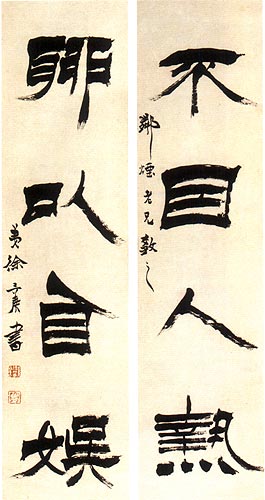 不因人熱
煙老兄教之
聊以自娛
徐三庚書